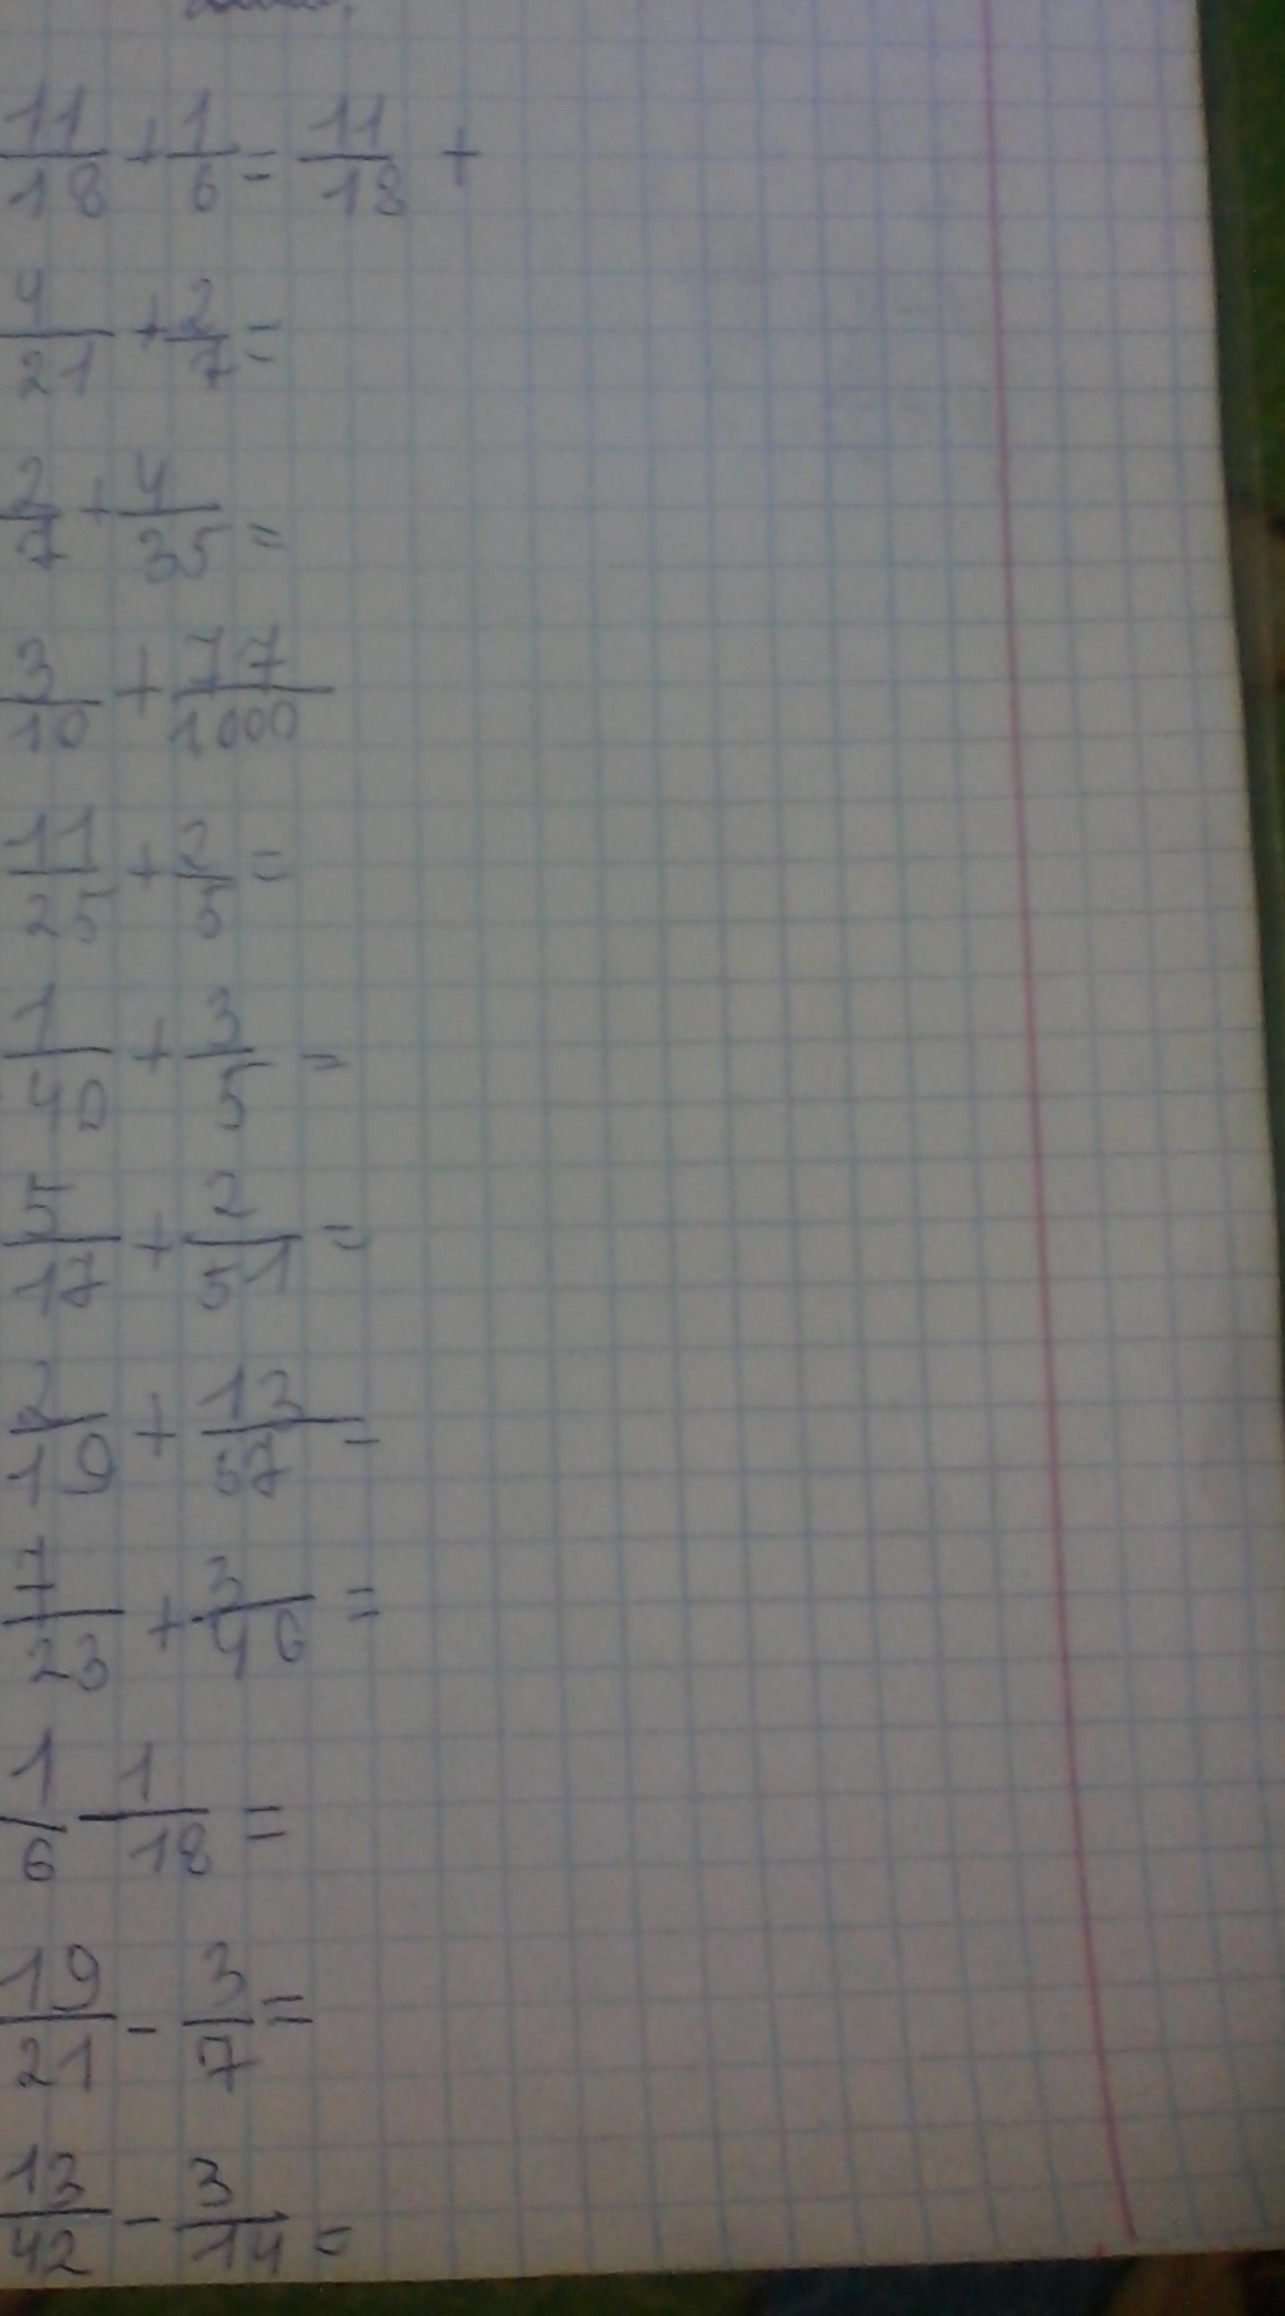 11/18 + 1/6 = 11/18 +
4/21 + 2/7 =
2/7 + 4/35 =
3/10 + 77/1000
11/25 + 2/5 =
1/40 + 3/5 =
5/17 + 2/51 =
2/19 + 13/57 =
7/23 + 3/46 =
1/6 - 1/18 =
19/21 - 3/7 =
13/42 - 3/14 =